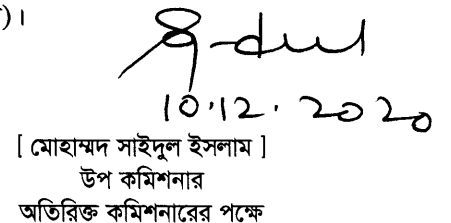 )।
10.12.2020
[ মোহাম্মদ সাইদুল ইসলাম ]
উপ কমিশনার
অতিরিক্ত কমিশনারের পক্ষে